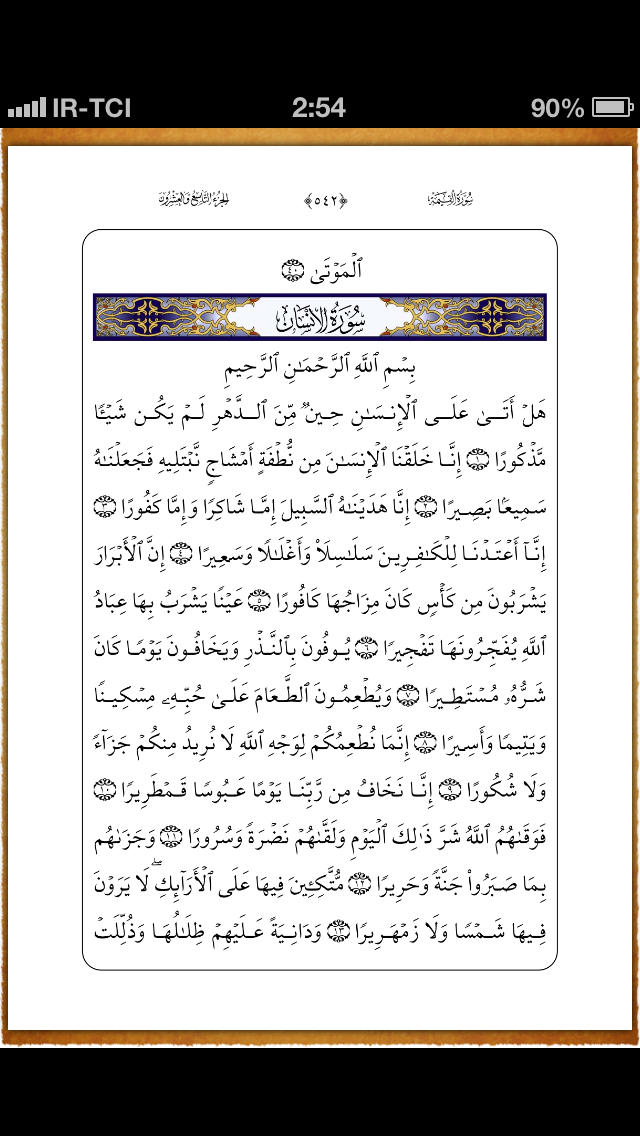 IR-TCI 2:54 90%
سُورَةُ القِيَامَةِ ﴿٥٤٢﴾ الجُزْءُ التَّاسِعُ وَالعِشْرُونَ
ٱلْمَوْتَىٰ ٤٠
سُورَةُ الإِنسَانِ
بِسْمِ ٱللَّهِ ٱلرَّحْمَـٰنِ ٱلرَّحِيمِ
هَلْ أَتَىٰ عَلَى ٱلْإِنسَـٰنِ حِينٌ مِّنَ ٱلدَّهْرِ لَمْ يَكُن شَيْـًٔا
مَّذْكُورًا ١ إِنَّا خَلَقْنَا ٱلْإِنسَـٰنَ مِن نُّطْفَةٍ أَمْشَاجٍ نَّبْتَلِيهِ فَجَعَلْنَـٰهُ
سَمِيعًۢا بَصِيرًا ٢ إِنَّا هَدَيْنَـٰهُ ٱلسَّبِيلَ إِمَّا شَاكِرًا وَإِمَّا كَفُورًا ٣
إِنَّآ أَعْتَدْنَا لِلْكَـٰفِرِينَ سَلَـٰسِلَا۟ وَأَغْلَـٰلًا وَسَعِيرًا ٤ إِنَّ ٱلْأَبْرَارَ
يَشْرَبُونَ مِن كَأْسٍ كَانَ مِزَاجُهَا كَافُورًا ٥ عَيْنًا يَشْرَبُ بِهَا عِبَادُ
ٱللَّهِ يُفَجِّرُونَهَا تَفْجِيرًا ٦ يُوفُونَ بِٱلنَّذْرِ وَيَخَافُونَ يَوْمًا كَانَ
شَرُّهُۥ مُسْتَطِيرًا ٧ وَيُطْعِمُونَ ٱلطَّعَامَ عَلَىٰ حُبِّهِۦ مِسْكِينًا
وَيَتِيمًا وَأَسِيرًا ٨ إِنَّمَا نُطْعِمُكُمْ لِوَجْهِ ٱللَّهِ لَا نُرِيدُ مِنكُمْ جَزَآءً
وَلَا شُكُورًا ٩ إِنَّا نَخَافُ مِن رَّبِّنَا يَوْمًا عَبُوسًا قَمْطَرِيرًا ١٠
فَوَقَىٰهُمُ ٱللَّهُ شَرَّ ذَٰلِكَ ٱلْيَوْمِ وَلَقَّىٰهُمْ نَضْرَةً وَسُرُورًا ١١ وَجَزَىٰهُم
بِمَا صَبَرُوا۟ جَنَّةً وَحَرِيرًا ١٢ مُّتَّكِـِٔينَ فِيهَا عَلَى ٱلْأَرَآئِكِ ۖ لَا يَرَوْنَ
فِيهَا شَمْسًا وَلَا زَمْهَرِيرًا ١٣ وَدَانِيَةً عَلَيْهِمْ ظِلَـٰلُهَا وَذُلِّلَتْ